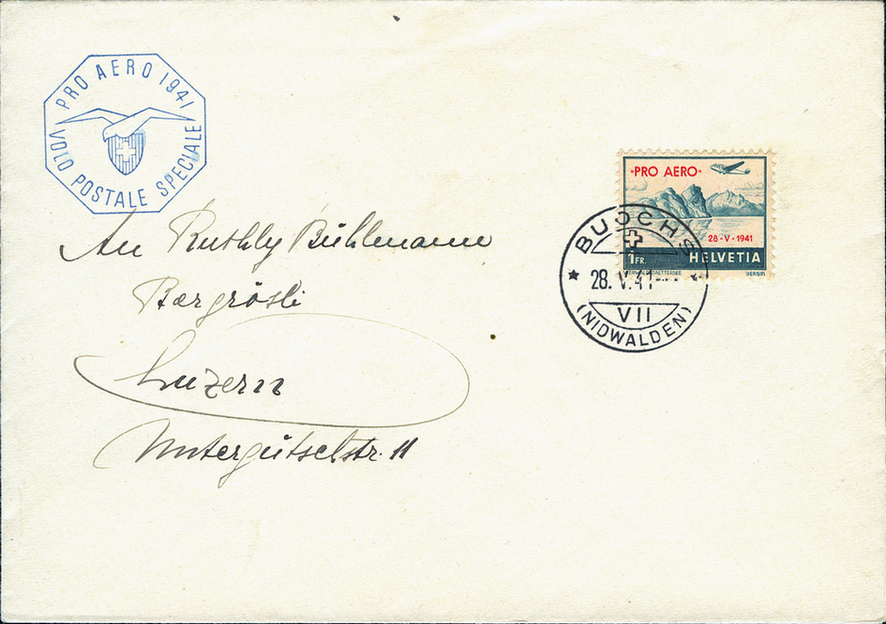 PRO AERO 1941
VOLO POSTALE SPECIALE
·PRO AERO·
28-V-1941
1 FR. HELVETIA
BUOCHS
28.V.41
VII
(NIDWALDEN)
An Ruthly Bühlmann
Bergrösli
Luzern
Untergütschstr. 11